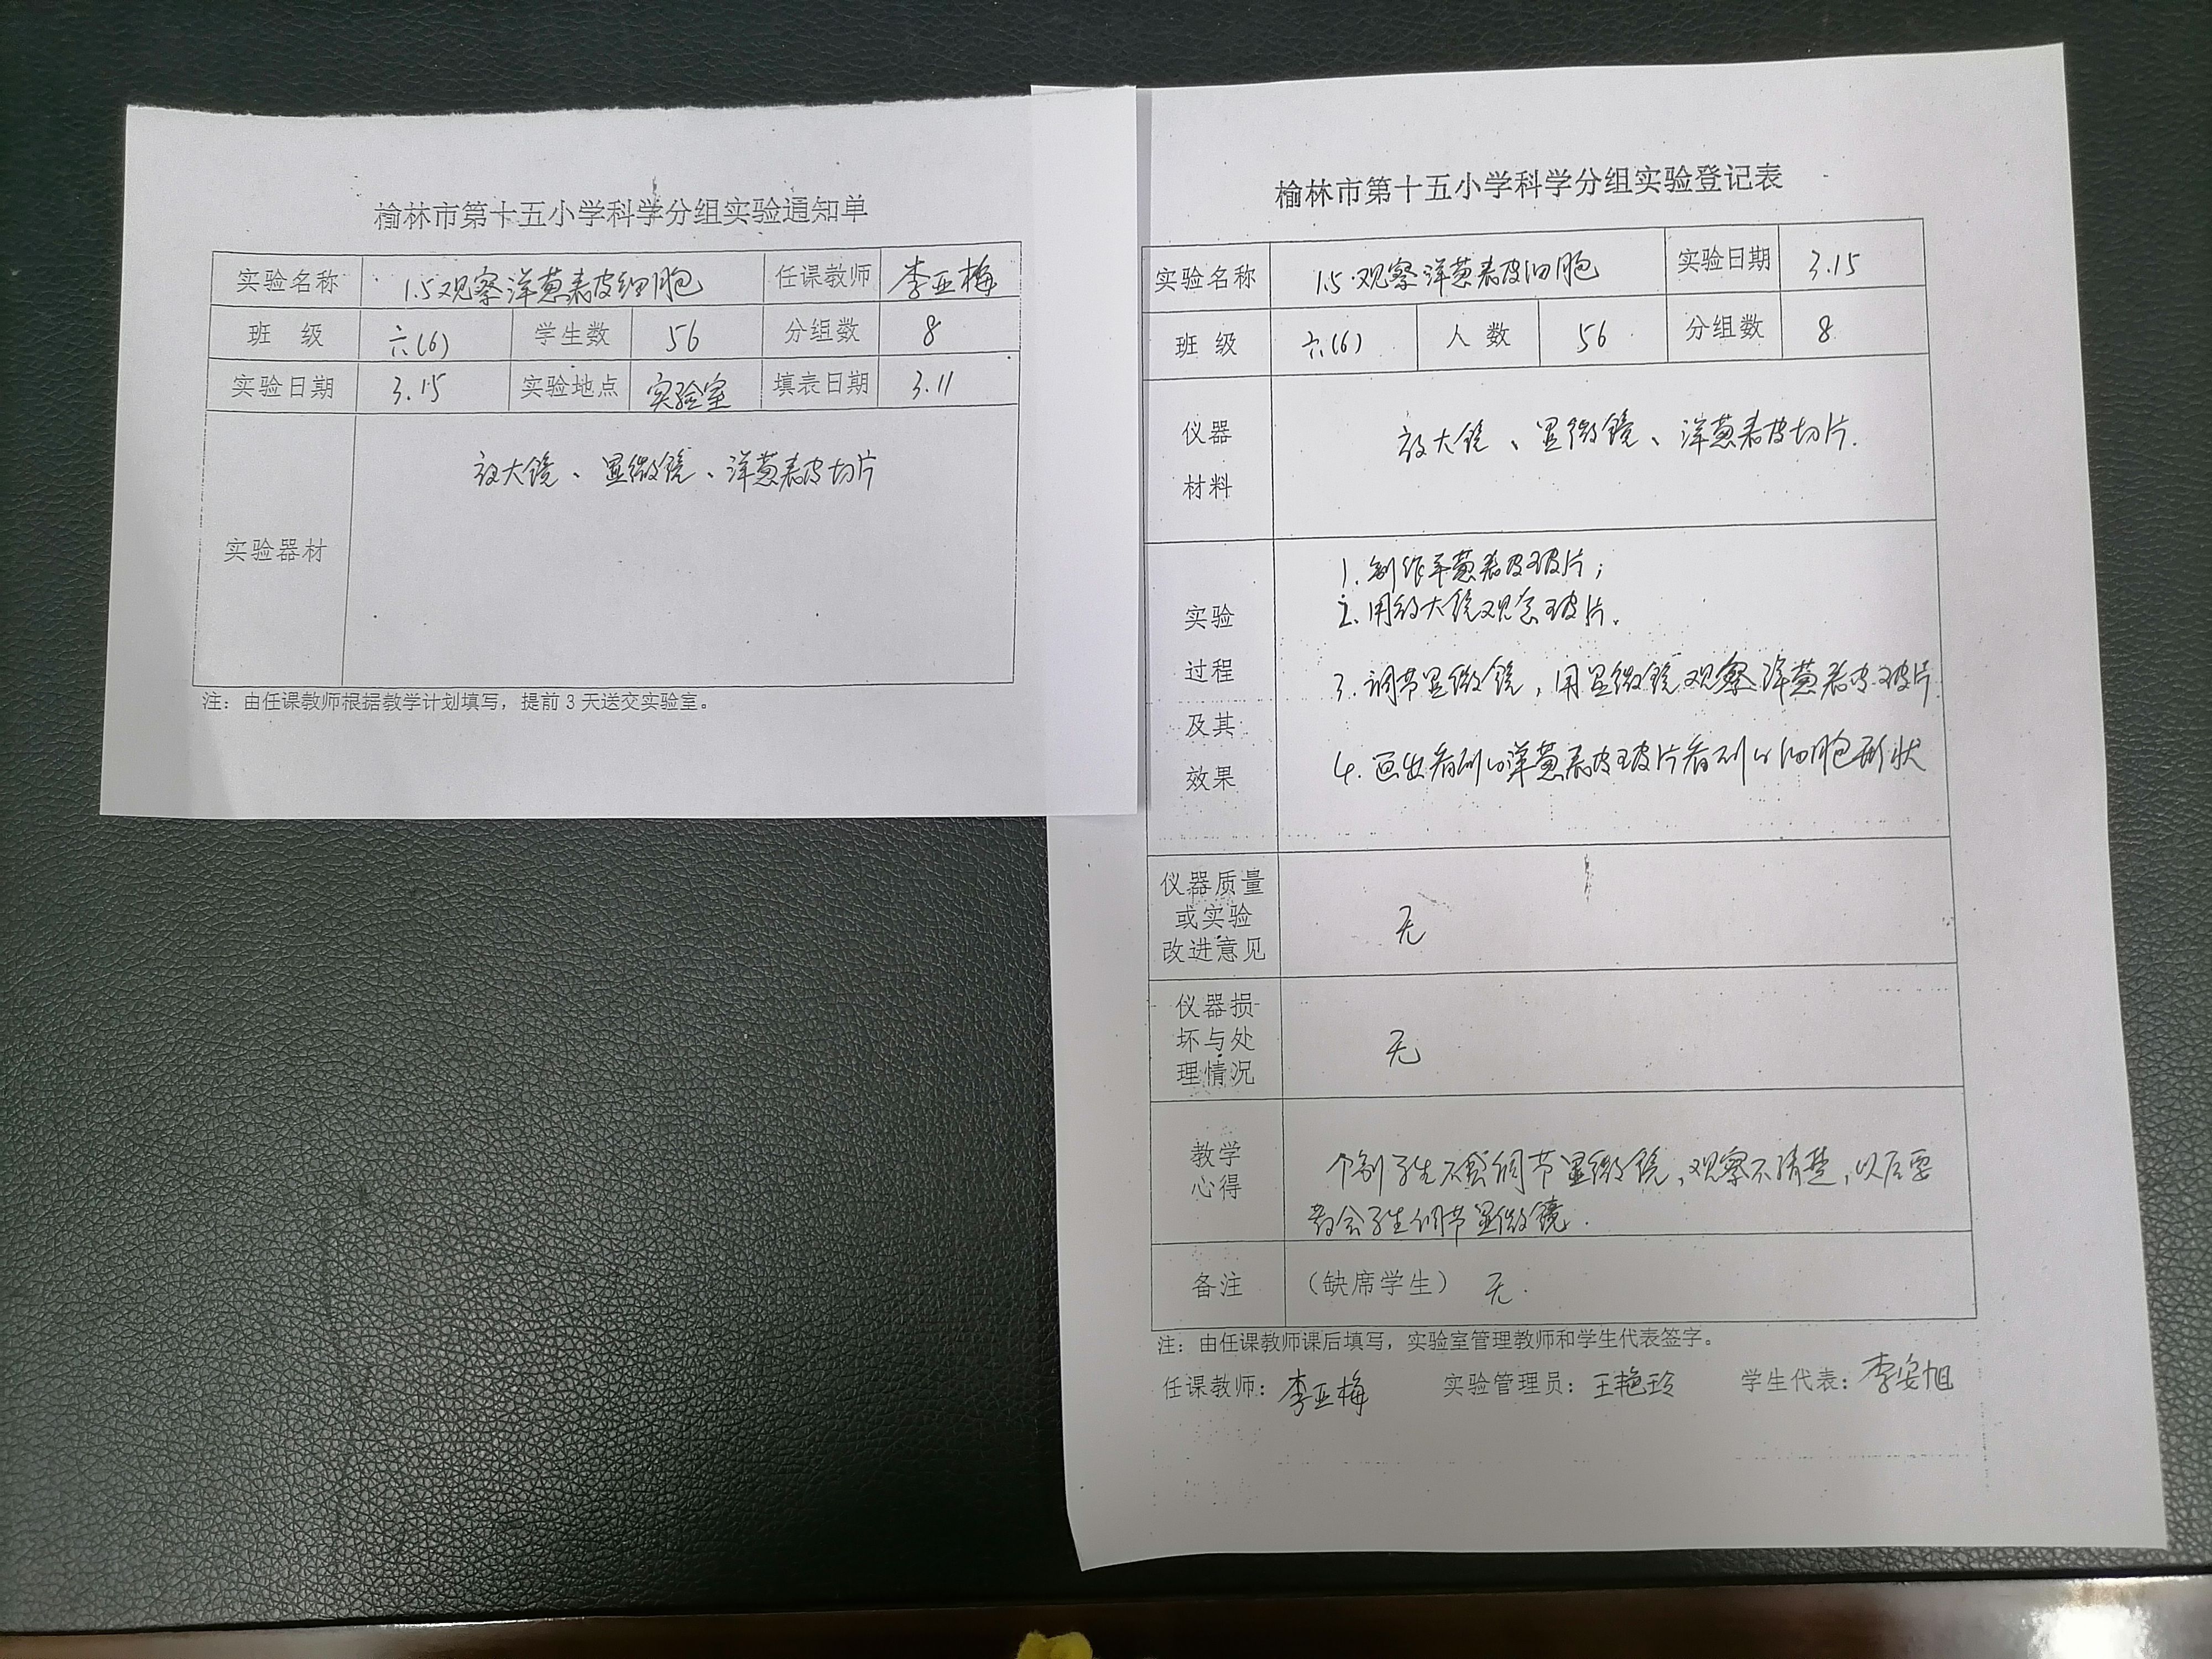 榆林市第十五小学科学分组实验通知单
实验名称 1.5观察洋葱表皮细胞 任课教师 李亚梅
班 级 六(6) 学生数 56 分组数 8
实验日期 3.15 实验地点 实验室 填表日期 3.11
实验器材 放大镜、显微镜、洋葱表皮切片
注：由任课教师根据教学计划填写，提前3天送交实验室。
榆林市第十五小学科学分组实验登记表
实验名称 1.5.观察洋葱表皮细胞 实验日期 3.15
班 级 六(6) 人 数 56 分组数 8
仪器
材料
放大镜、显微镜、洋葱表皮切片.
实验
过程
及其
效果
1.制作洋葱表皮玻片；
2.用放大镜观察玻片.
3.调节显微镜，用显微镜观察洋葱表皮玻片
4.画出看到的洋葱表皮玻片看到的细胞形状
仪器质量
或实验
改进意见
无
仪器损
坏与处
理情况
无
教学
心得
个别学生不会调节显微镜，观察不清楚，以后要
教会学生调节显微镜.
备注 （缺席学生） 无.
注：由任课教师课后填写，实验室管理教师和学生代表签字。
任课教师：李亚梅 实验管理员：王艳玲 学生代表：李安旭